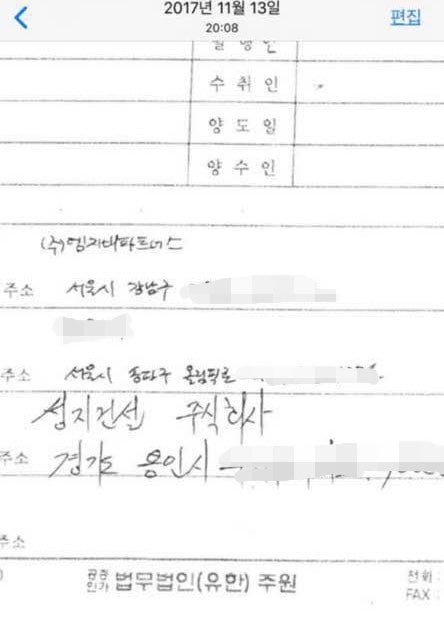 2017년 11월 13일
20:08
편집
발행인
수취인
양도일
양수인
(주)엠지비파트너스
주소 서울시 강남구
주소 서울시 송파구 올림픽로
성지건설 주식회사
주소 경기도 용인시
주소
공증인가 법무법인(유한) 주원
전화:
FAX: